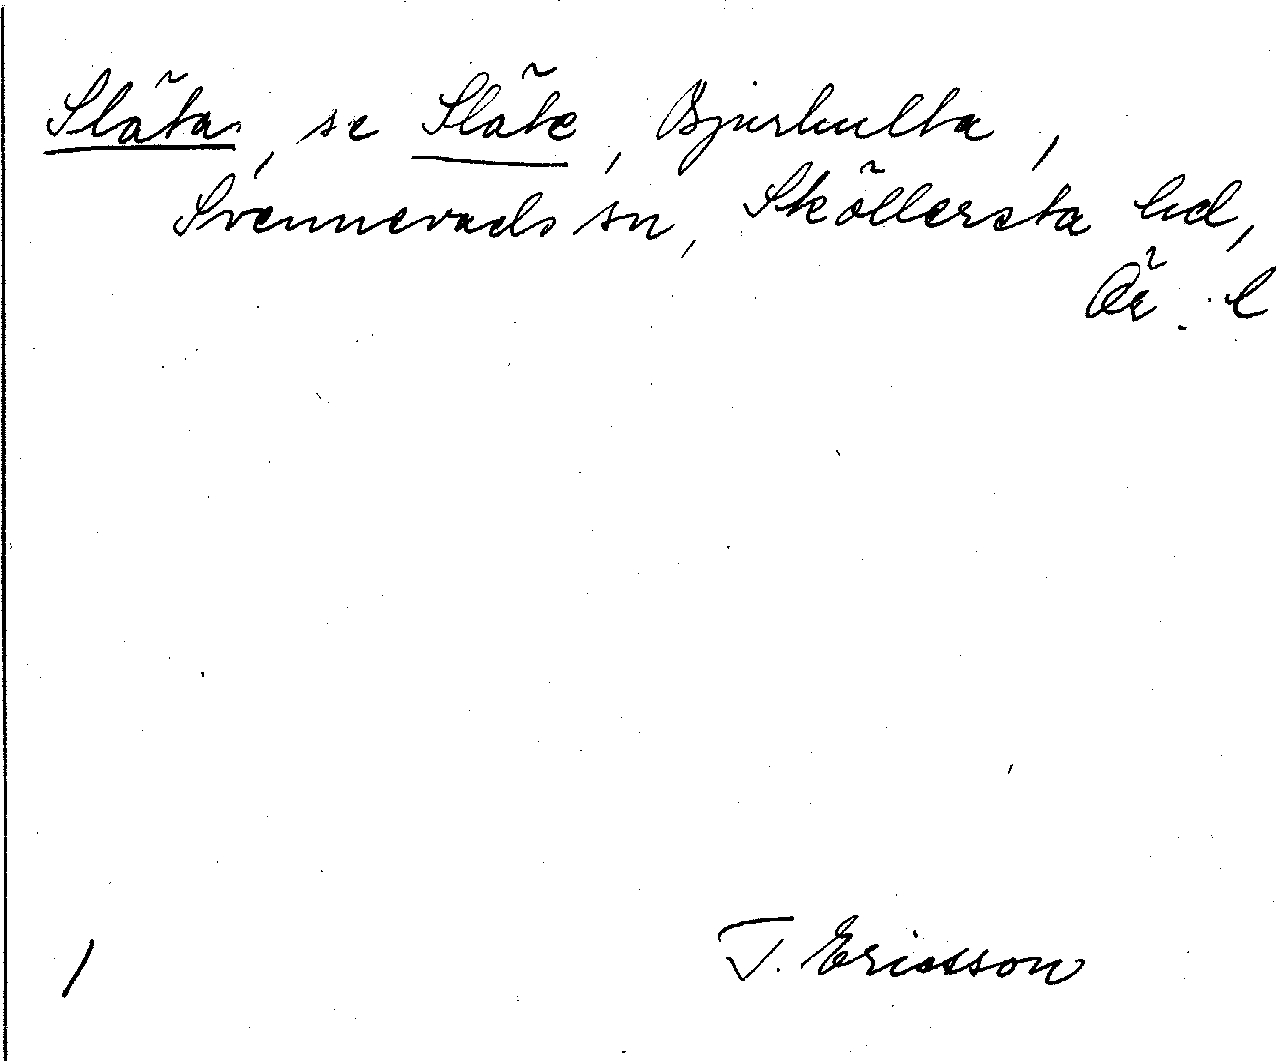 Släta, se Släte, Bjurhulta,
Svennevads sn, Sköllersta hd,
Ör. l
T. Ericsson